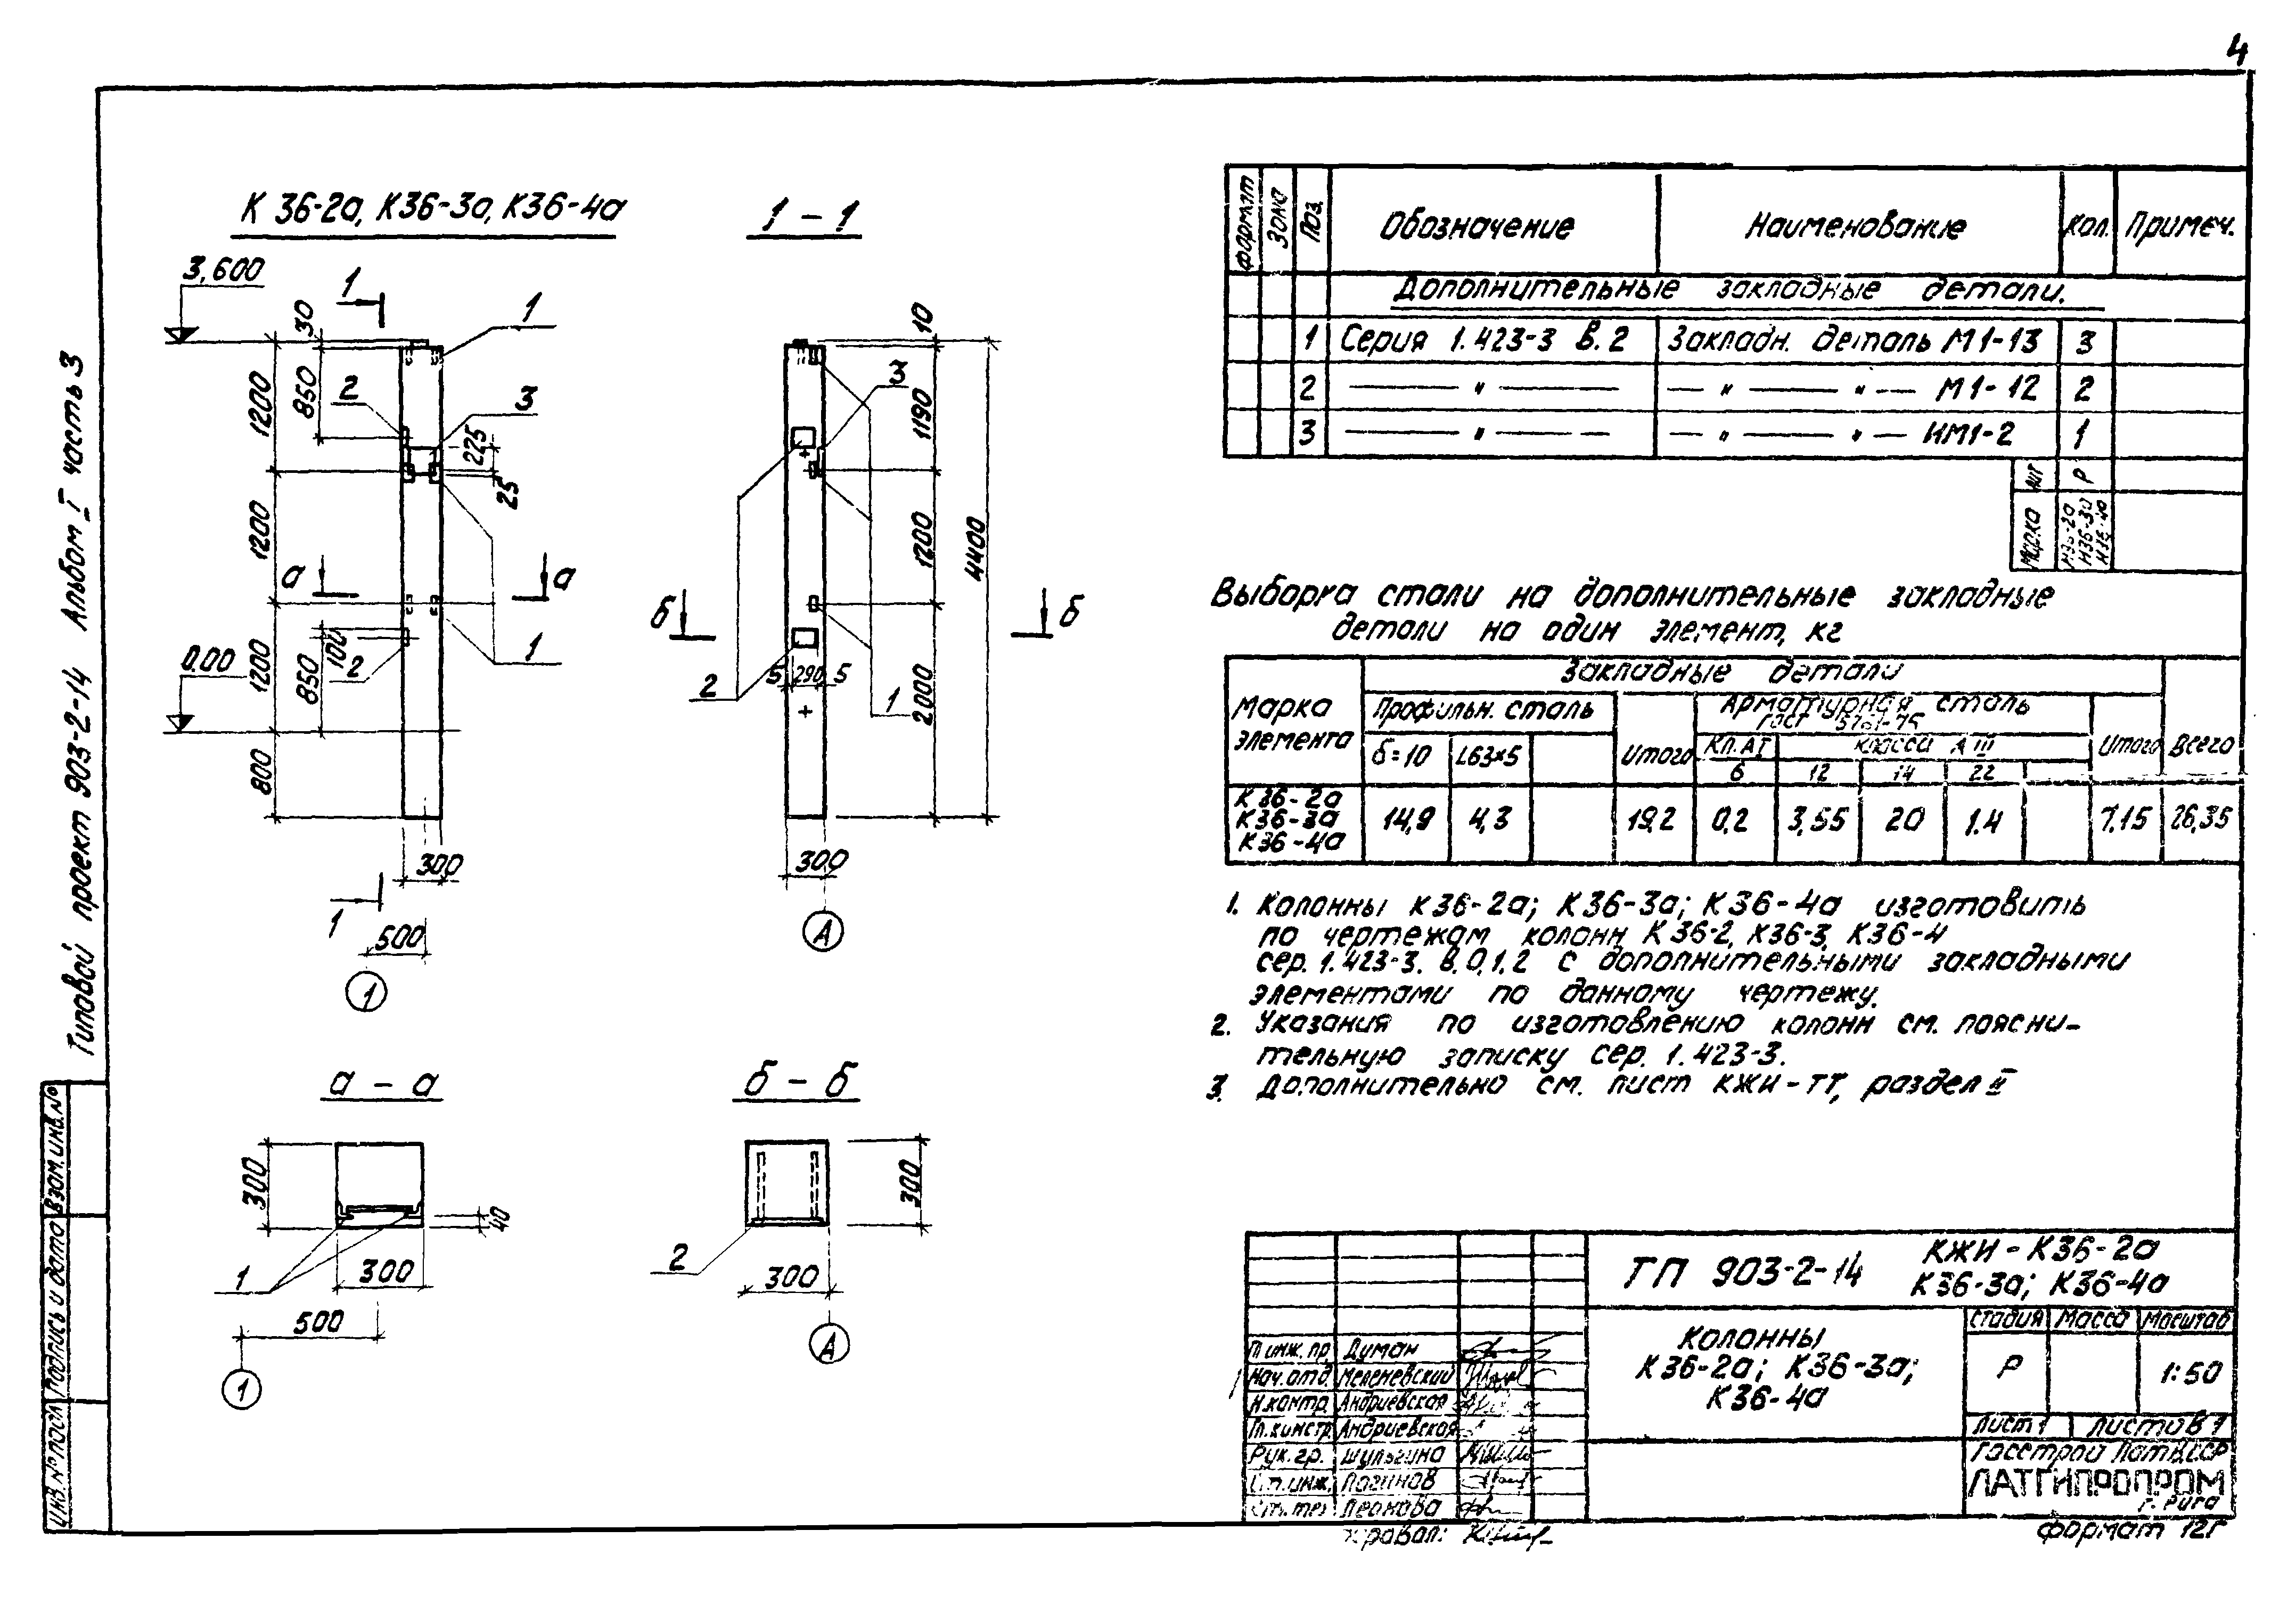 4
Типовой проект 903-2-14 Альбом I часть 3
К 36-2а, К36-3а, К36-4а
3,600
1
30
1
1200
850
2
3
225
25
1200
а
а
1200
0.00
100
850
2
1
800
300
1
500
1
1 – 1
10
3
1190
1200
4400
б
б
5 290 5
2
1
2000
300
А
а – а
300
40
1
300
500
1
б – б
300
2
300
А
Формат
Зона
Поз.
Обозначение
Наименование
Кол.
Примеч.
Дополнительные закладные детали.
1 Серия 1.423-3 в.2 Закладн. деталь М1-13 3
2 — " — — " — " — М1-12 2
3 — " — — " — " — НМ1-2 1
лит Р
Марка К36-2а К36-3а К36-4а
Выборка стали на дополнительные закладные
детали на один элемент, кг
Марка элемента
Закладные детали
Профильн. сталь
Арматурная сталь
ГОСТ 5781-75
б=10 L63×5 Итого Кл. АI класса А III Итого Всего
6 12 14 22
К36-2а
К36-3а
К36-4а
14,9 4,3 19.2 0,2 3,55 20 1.4 7.15 26,35
1. Колонны К36-2а; К36-3а; К36-4а изготовить
по чертежам колонн К36-2, К36-3, К36-4
сер. 1.423-3. в.0,1,2 с дополнительными закладными
элементами по данному чертежу.
2. Указания по изготовлению колонн см. поясни-
тельную записку сер. 1.423-3.
3. Дополнительно см. лист КЖИ-ТТ, раздел II
ТП 903-2-14
КЖИ-К36-2а
К36-3а; К36-4а
Колонны
К36-2а; К36-3а;
К36-4а
Стадия Масса Масштаб
Р 1:50
Лист 1 Листов 1
Госстрой Латв.ССР
ЛАТГИПРОПРОМ
г. Рига
Гл.инж.пр. Думан
Нач.отд. Меленевский
Н.контр. Андриевская
Гл.констр. Андриевская
Рук.гр. Шульгина
Ст.инж. Логинов
Ст.тех. Леонова
формат 12г
Инв.№ подл.
Подпись и дата
Взам.инв.№